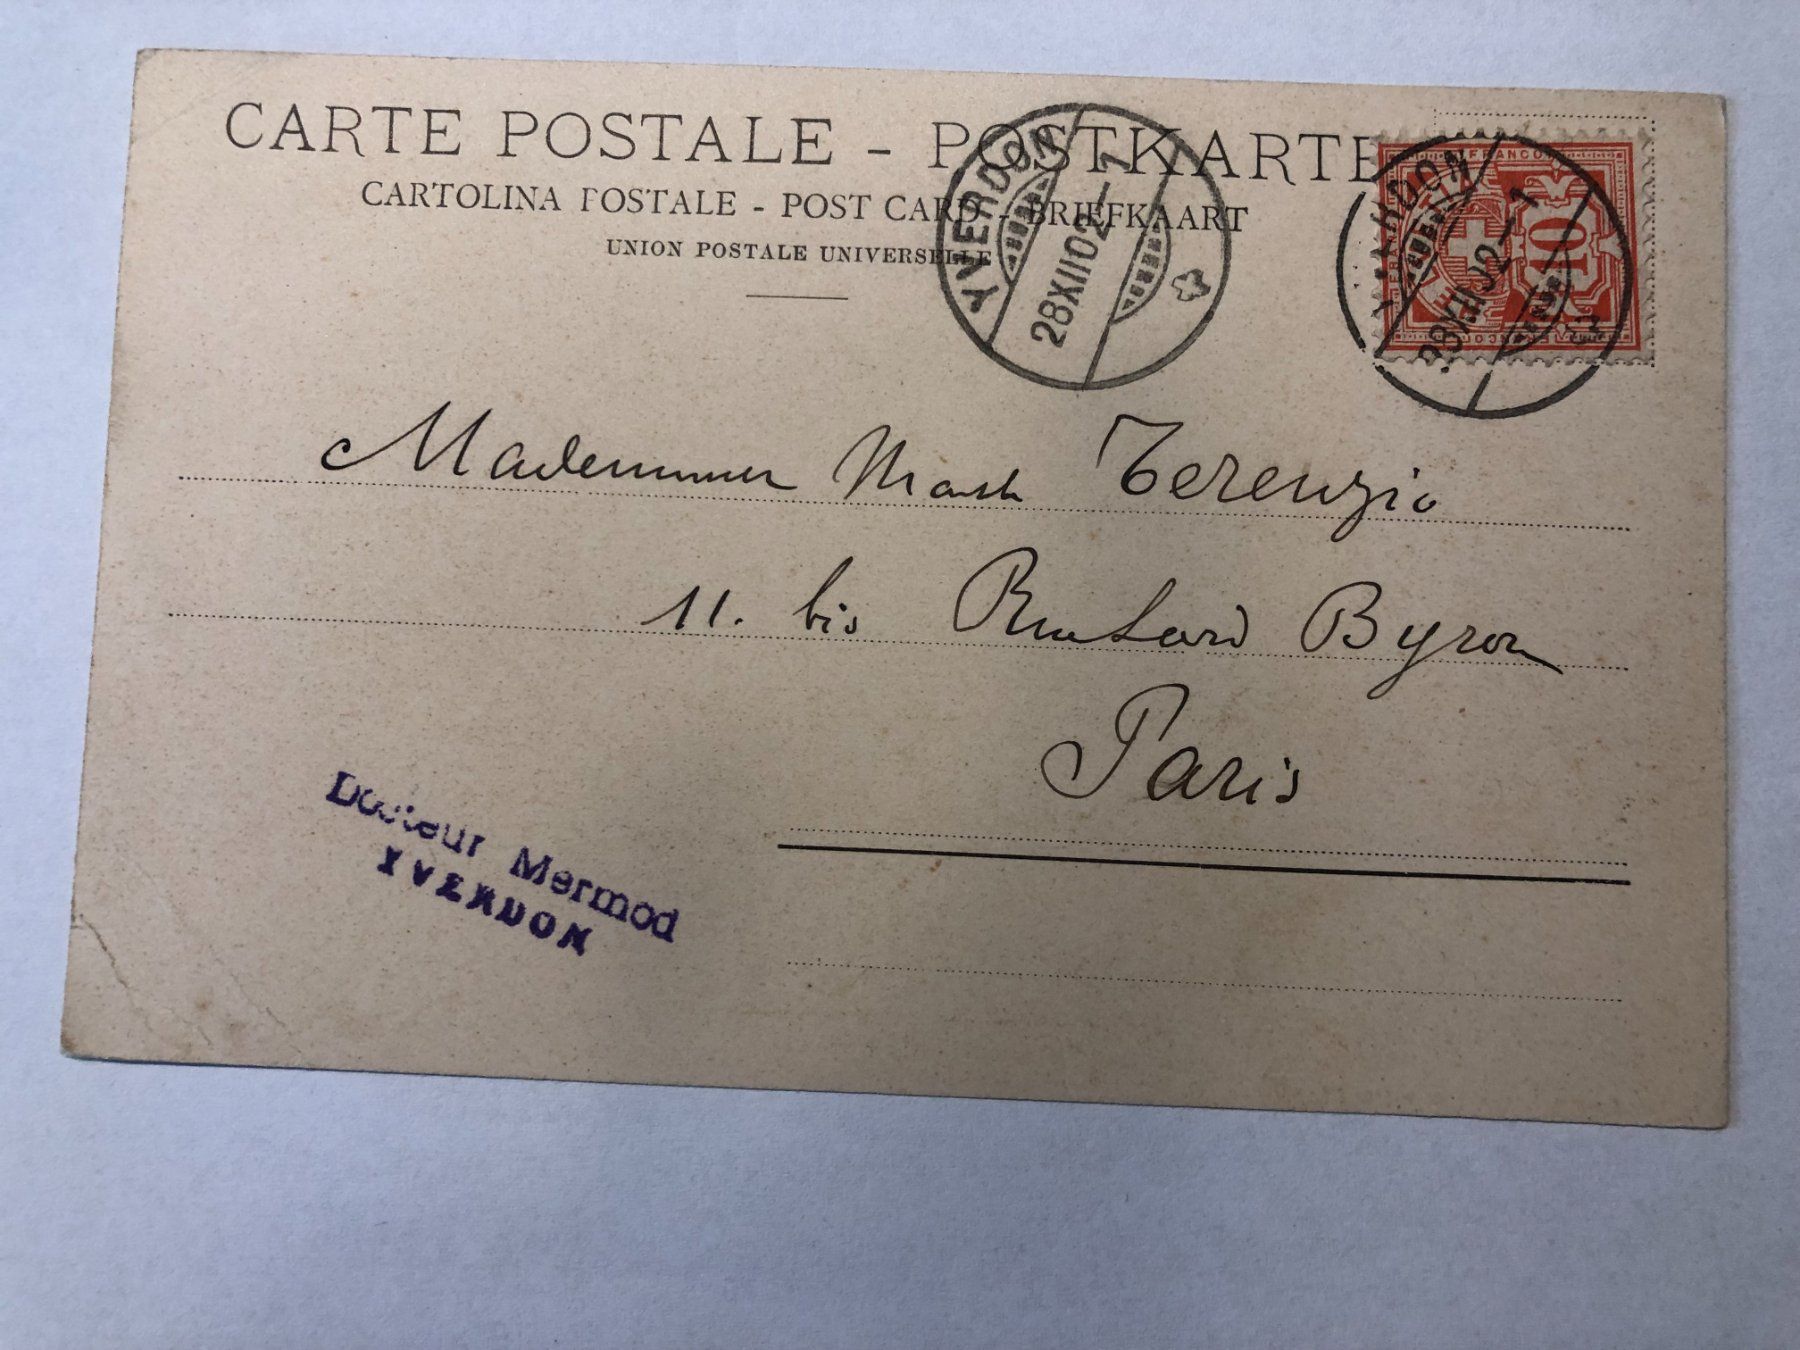 CARTE POSTALE - POSTKARTE
CARTOLINA POSTALE - POST CARD - BRIEFKAART
UNION POSTALE UNIVERSELLE
YVERDON
28XII02-1
YVERDON
28XII02-1
FRANCO
10
Terenzio
11. bis Byron
Paris
Docteur Mermod
YVERDON